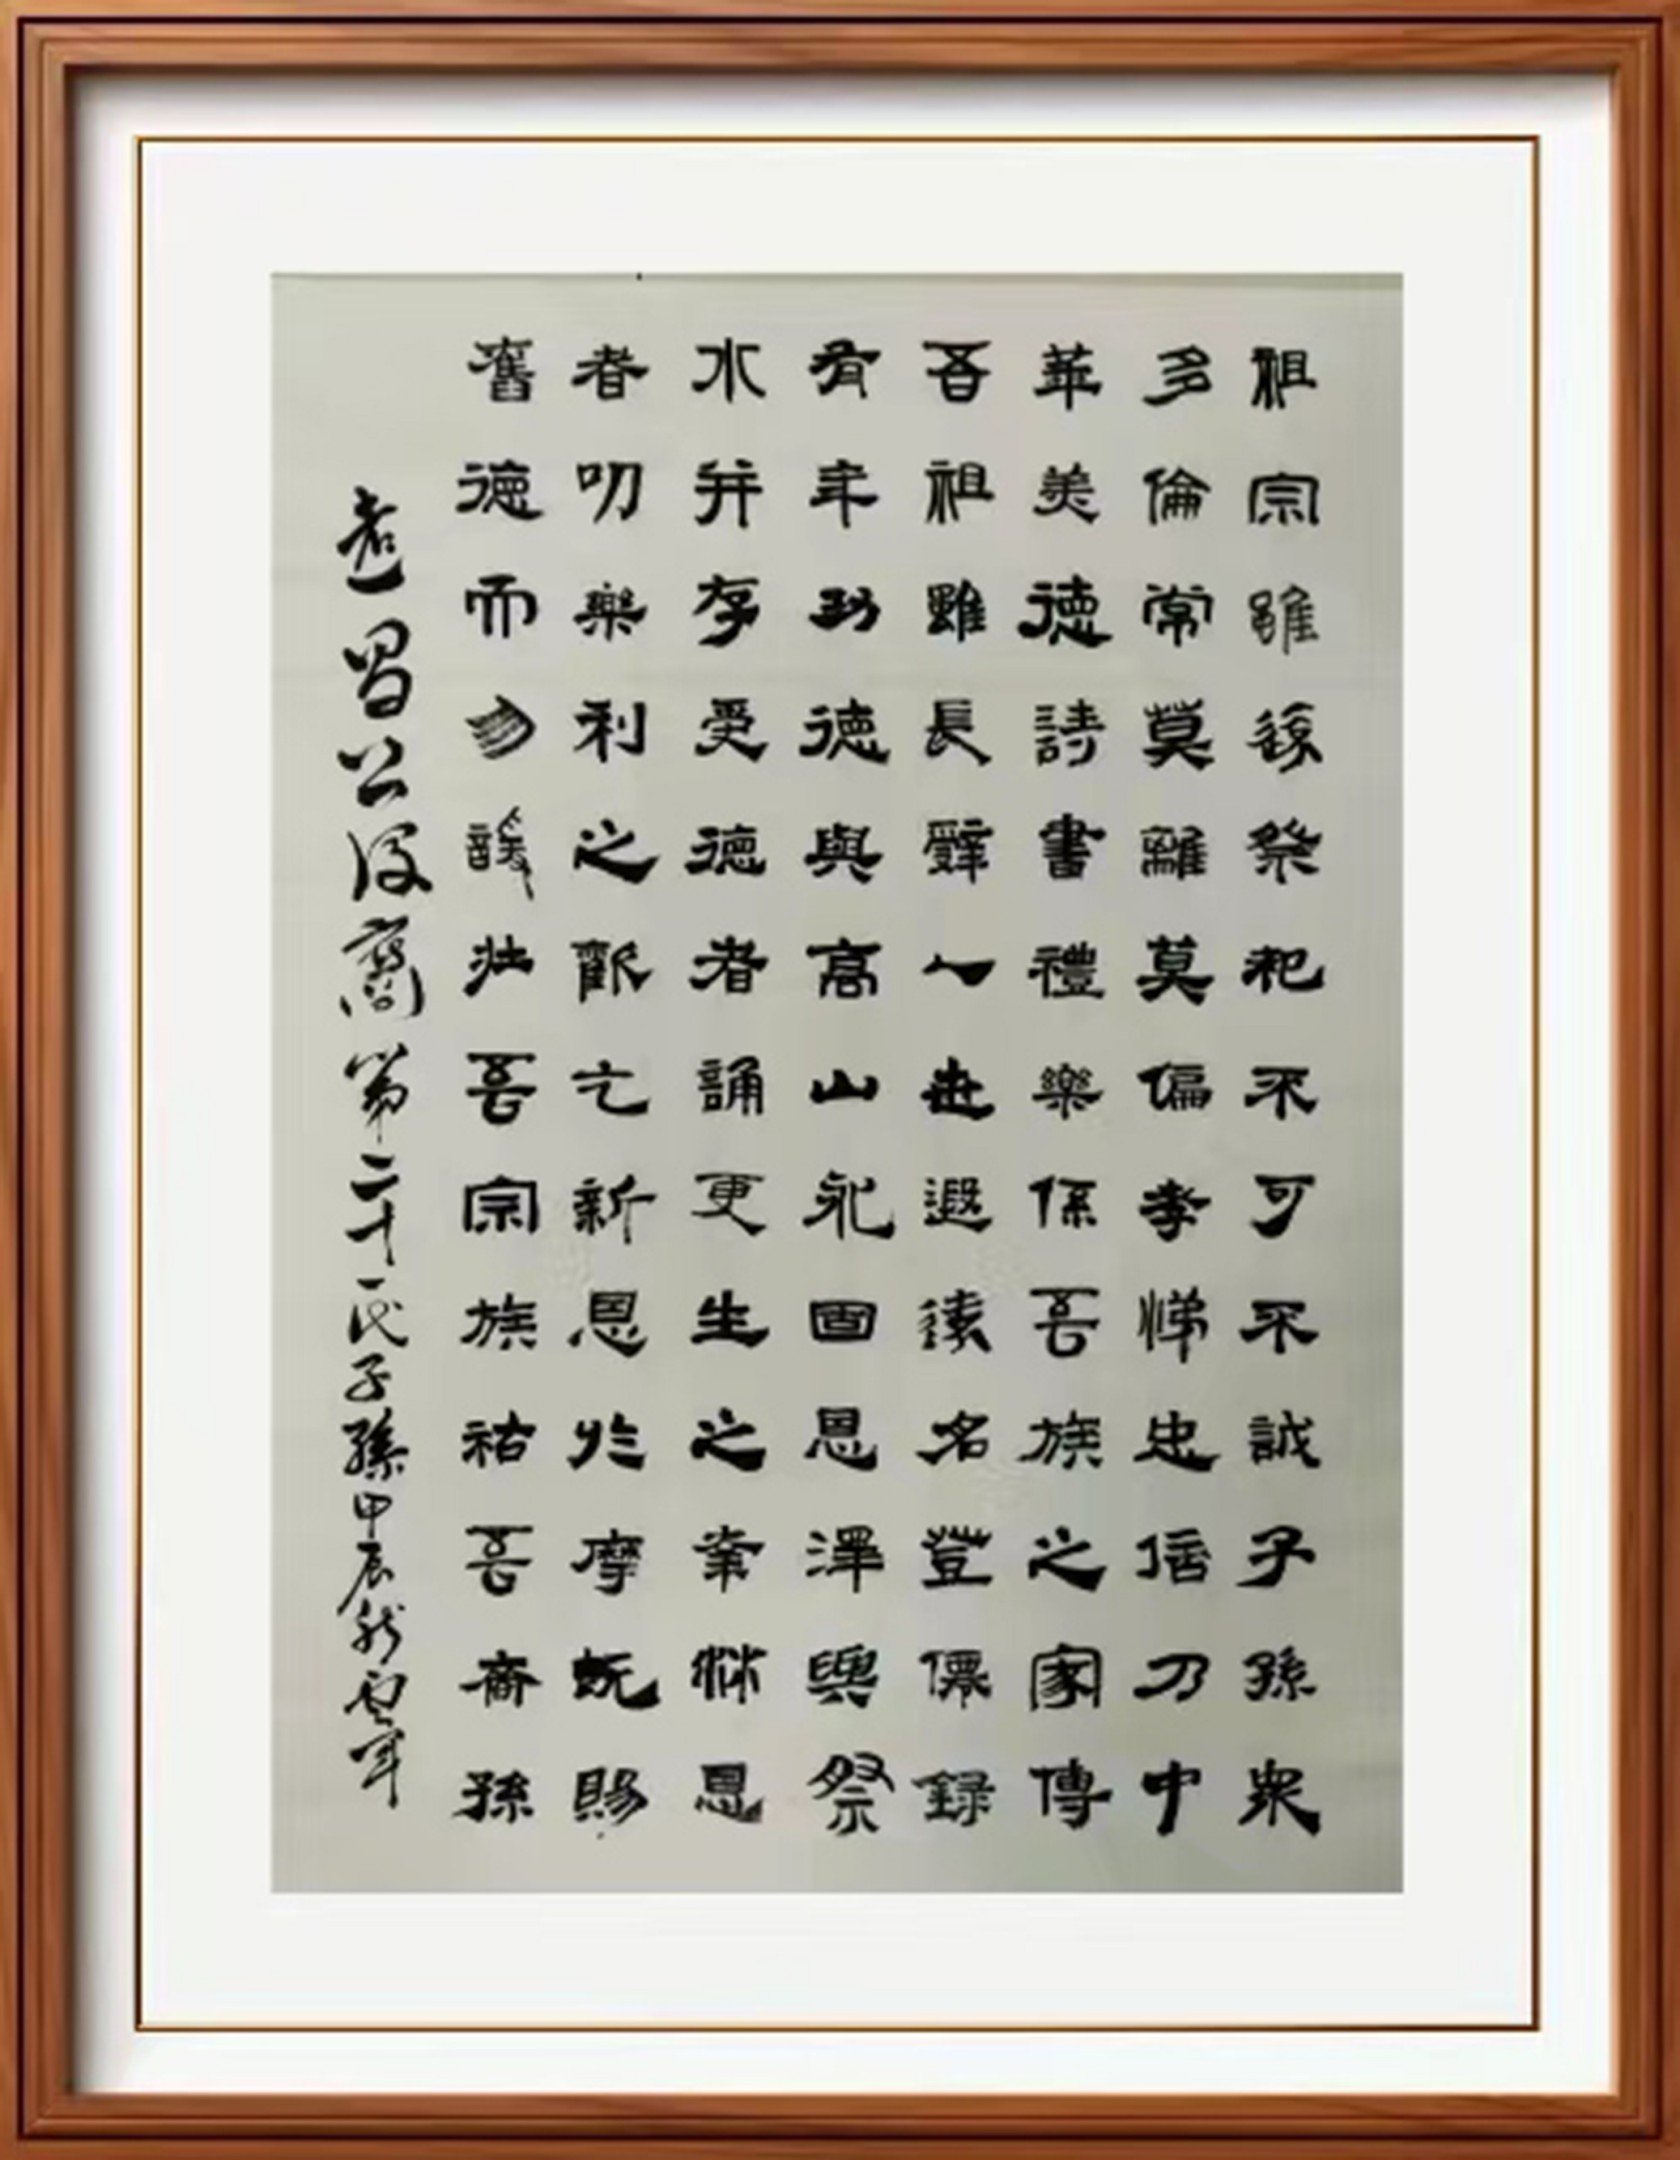 祖宗雖遠祭祀不可不誠子孫衆
多倫常莫離莫偏孝悌忠信乃中
華美德詩書禮樂係吾族之家傳
吾祖雖長辭人世遐遠名登儒録
有年功德與高山永固恩澤與祭
水并存受德者誦更生之業懷恩
者叨樂利之歡亡新恩於摩既賜
舊德而勿諼壯吾宗族祐吾裔孫
昌公後裔第二十一代子孫甲辰秋雲军